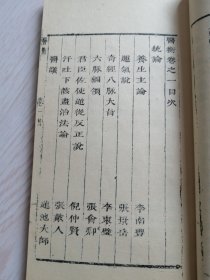 醫衡卷之一目次
統論
養生主論　李南豐
運氣說　張岳
奇經八脈大旨　李東璧
六脈綱領　張會卿
君臣佐使逆從反正說　倪仲賢
汗吐下該盡治法論　張戴人
醫議　蓮池大師